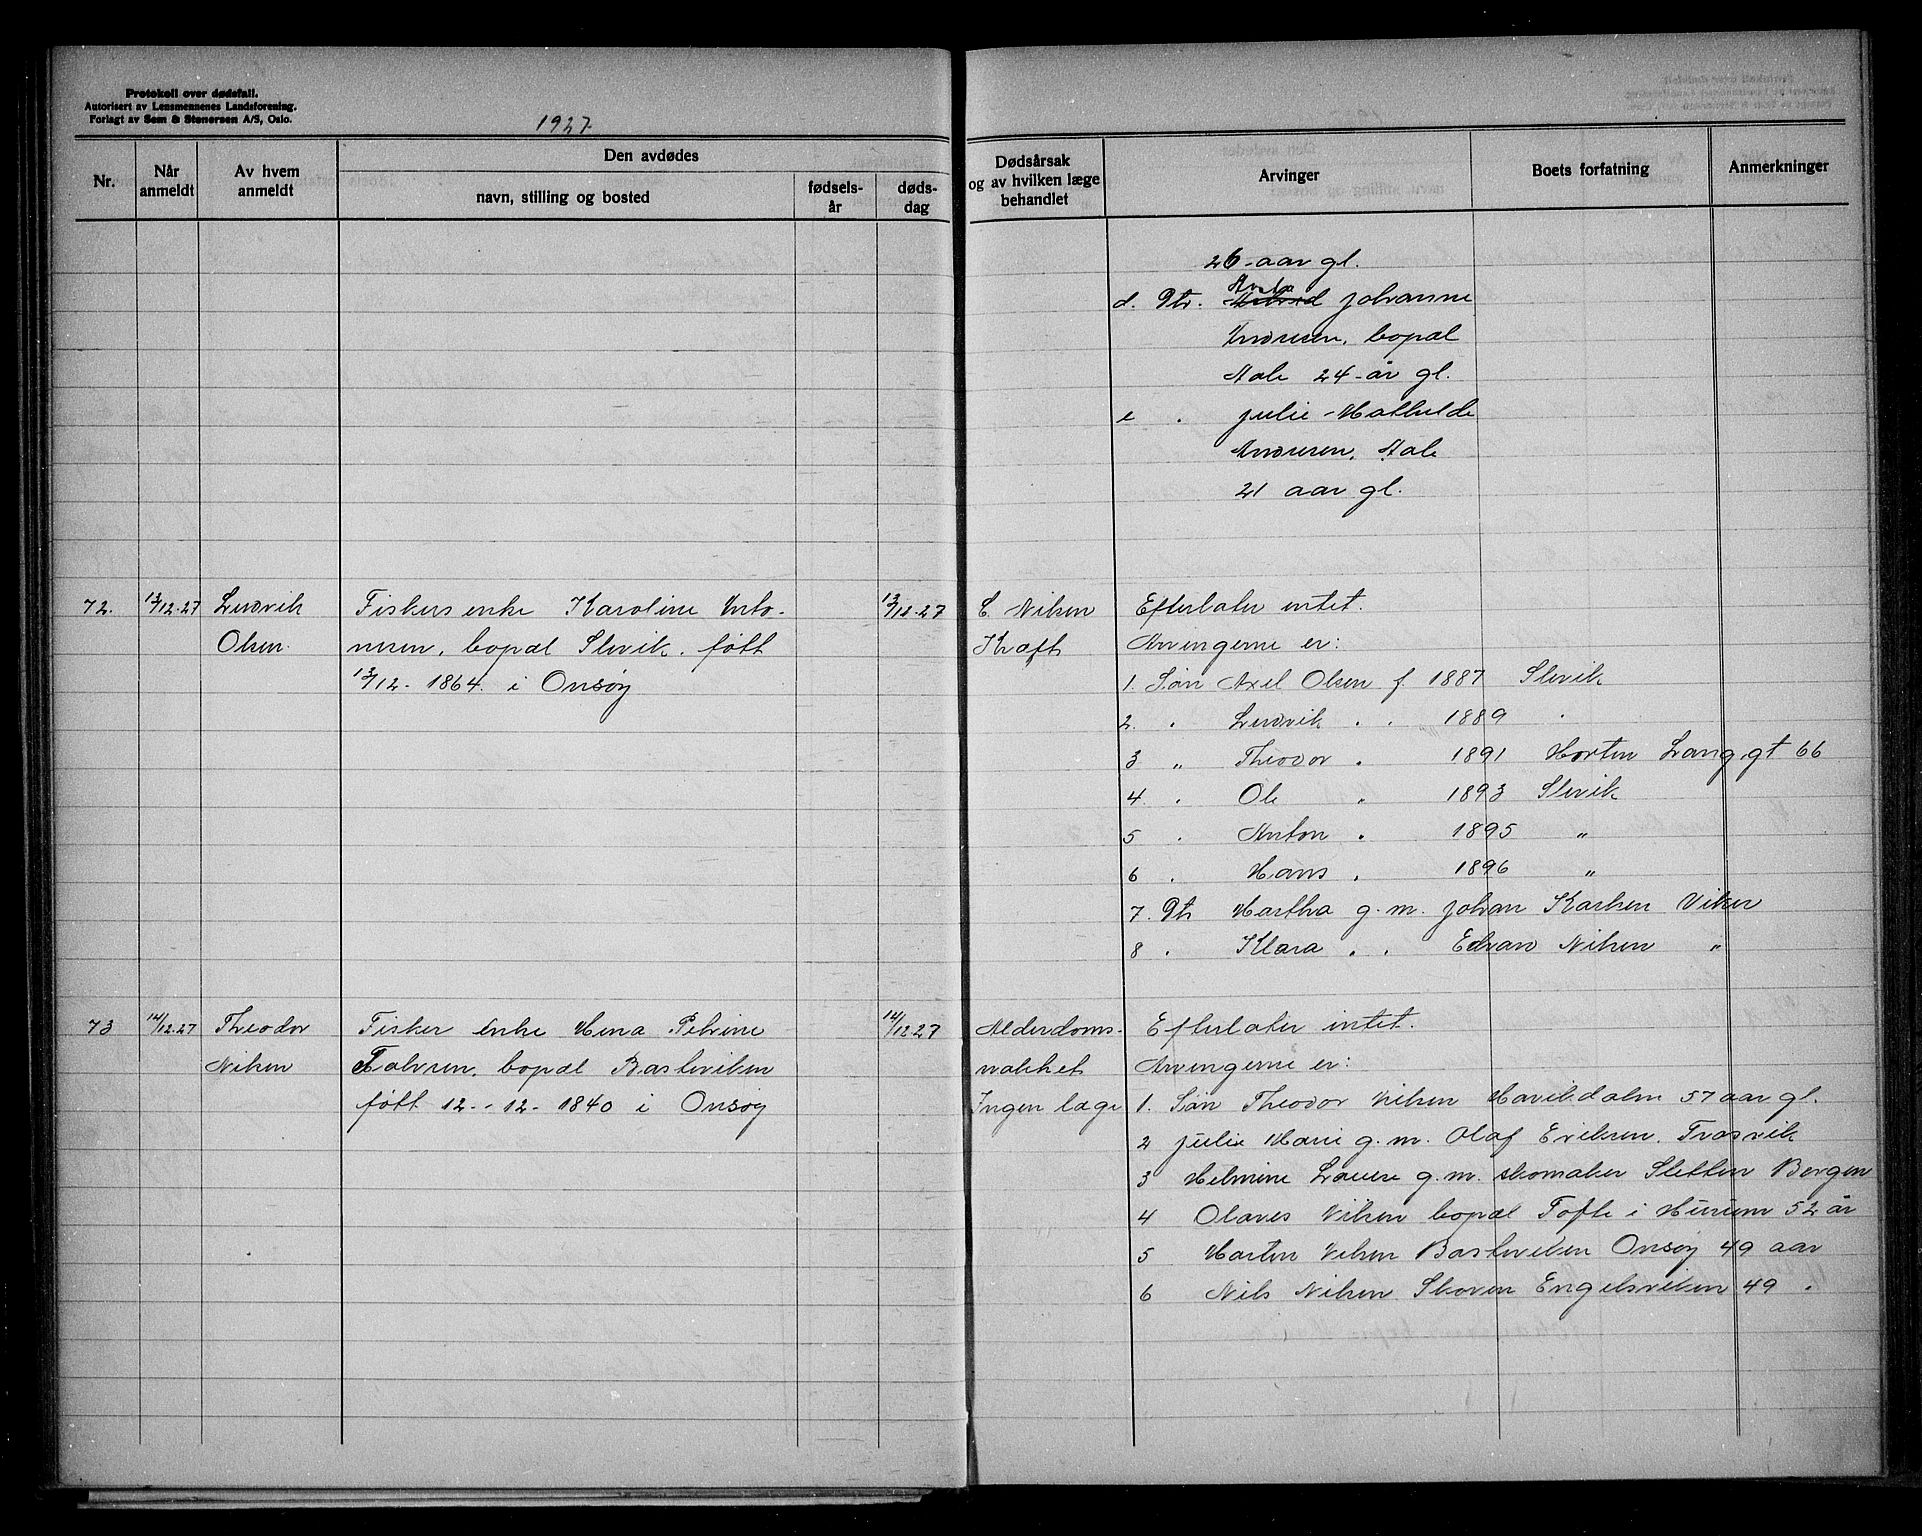 Protokoll over dødsfall.
Autorisert av Lensmennenes Landsforening.
Forlagt av Sem & Stenersen A/S, Oslo.
1927
Nr.
Når anmeldt
Av hvem anmeldt
Den avdødes
navn, stilling og bosted
fødsels-år
døds-dag
Dødsårsak og av hvilken læge behandlet
Arvinger
Boets forfatning
Anmerkninger
26-aar gl.
d. Dtr. Johanne
Andresen, bopæl
Aale 24-år gl.
e . Julie-Mathilde
Andresen, Aale
21 aar gl.
72. 13/12-27 Ludvik Fiskers enke Karoline Anto- 13/12-27 C. Nilsen Efterlater intet.
Olsen nesen, bopæl Slevik, født Kraft Arvingerne er:
13/12-1864 i Onsøy 1. Søn Axel Olsen f. 1887 Slevik
2. . Ludvik . . 1889 .
3 „ Theodor . 1891 Horten Langgt 66
4. . Ole „ 1893 Slevik
5 . Anton . 1895 „
6 . Hans . 1896 „
7. Dtr Martha g.m. Johan Karlsen Viker
8 . Klara . . Edvan Nilsen „
73 14/12-27 Theodor Fisker enke Mena Petrine 14/12-27 Alderdoms- Efterlater intet.
Nilsen bopæl Basteviken svakhet Arvingerne er:
født 12-12-1840 i Onsøy Ingen læge 1. Søn Theodor Nilsen Mavikdalen 57 aar gl.
2 Julie Marie g.m. Olaf Eriksen, Trosvik
3 Helmine Lovise g.m. skomaker Sletten Bergen
4 Olaves Nilsen bopæl Tofte i Hurum 52 år
5 Marten Nilsen Basteviken Onsøy 49 aar
6 Nils Nilsen Skoven Engelsviken 49 .